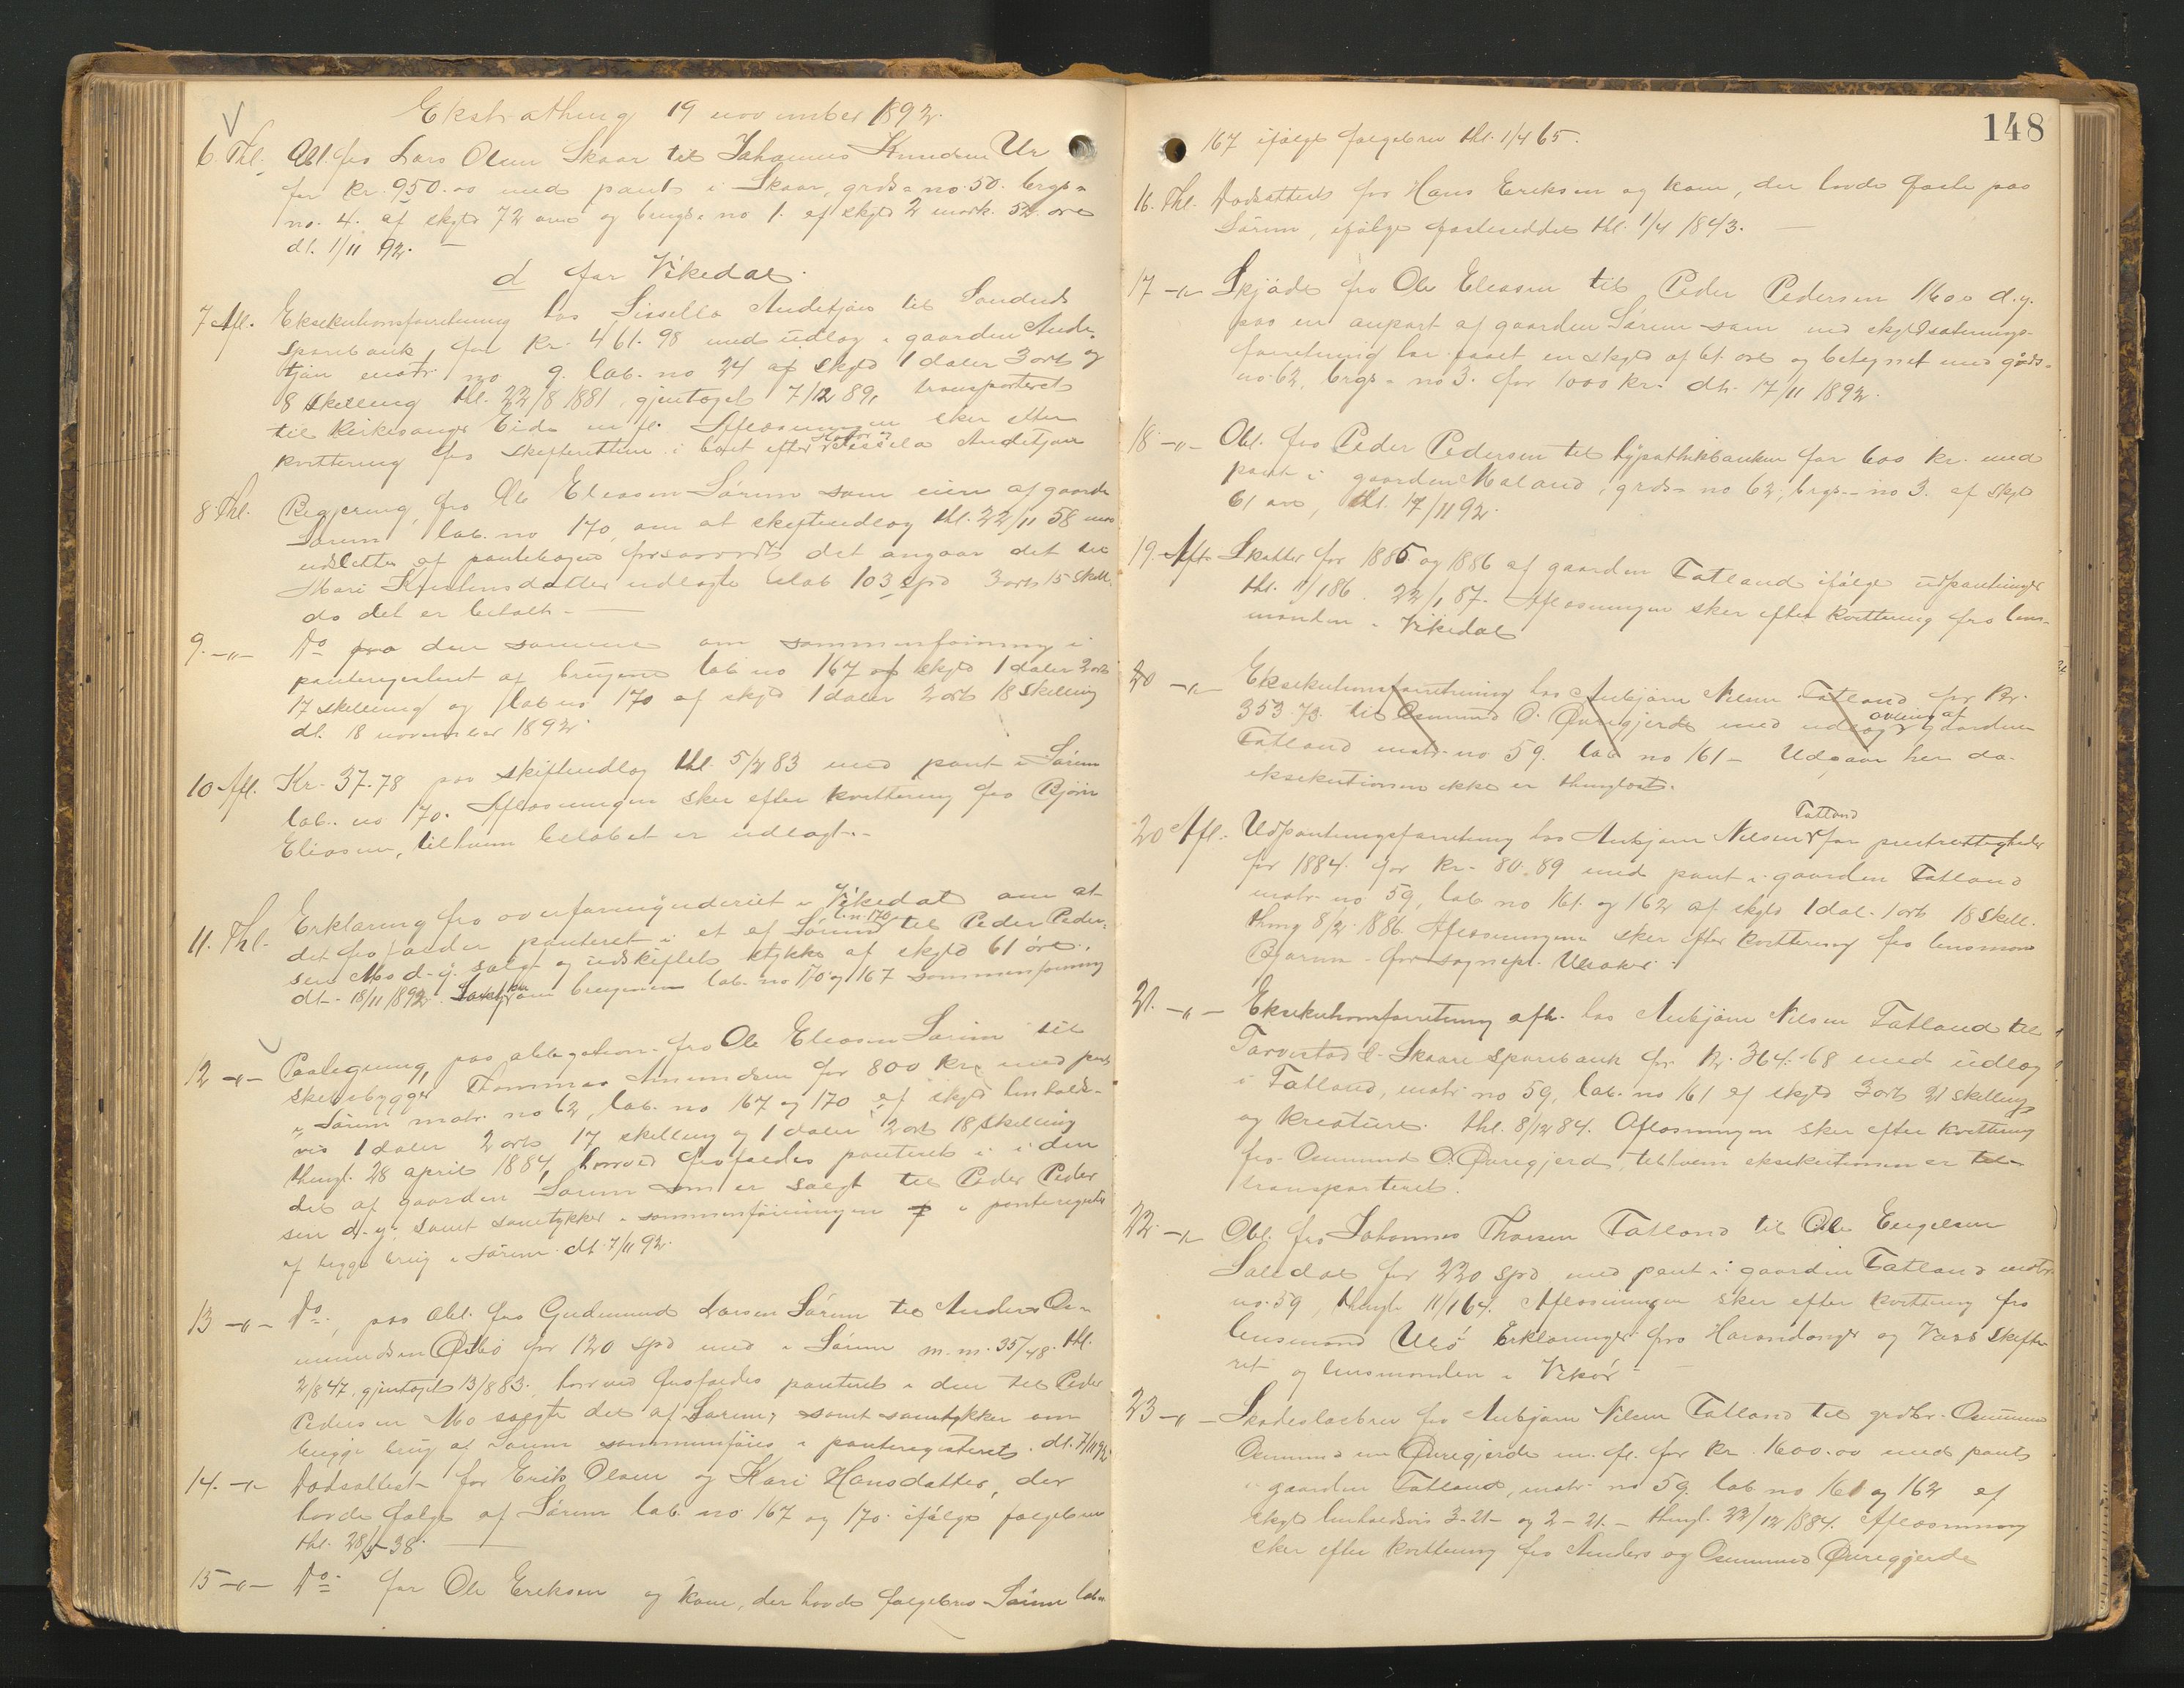 Ekstrathing 19 november 1892.
6. Thl. Obl. fra Lars Olsen Skaar til Johannes Knudsen Ur
for kr. 950.00 med pant i Skaar, grds. no. 50. brgs.
no. 4. af skyld 72 øre og brugs. no 1. af skyld 2 mark. 52 øre
dt. 1/11 92.
d for Vikedal.
7 Afl. Eksekutionsforretning hos Sissella Andetjørn til Sandeids
Sparebank, for kr. 461.98 med udlæg i gaarden Ande-
tjørn matr. no 9. lab. no 24 af skyld 1 daler 3 ort og
8 skilling thl. 22/8 1881, gjentaget 7/12 89, transporteret
til kirkesanger Eide m. fl. Aflæsningen sker efter
kvittering fra skifteretten i boet efter Sissela Andetjørn
8. Thl. Begjæring fra Ole Eleasen Sørum som eier af gaarden
Sørum lab. no 170, om at skifteudlæg thl. 22/11 58
udslettes af pantebogen forsaavidt det angaar det til
Mari Kristensdatter udlagte beløb 103 spd 3 ort 15 skill.
da det er betalt.
9. -"- Do fra den samme om sammenføining i
panteregisteret af brugene lab no 167 af skyld 1 daler 2 ort
17 skilling og lab no 170 af skyld 1 daler 2 ort 18 skilling
dt. 18 november 1892.
10 Afl. Kr. 37.78 paa skifteudlæg thl. 5/2 83 med pant i Sørum
lab. no 170. Aflæsningen sker efter kvittering fra Bjørn
Eliasen, til hvem beløbet er udlagt.
11. Thl. Erklæring fra overformynderiet i Vikedal om at
det frafalder panteret i et af Sørum l. n. 170 til Peder Peder-
sen Mo d. y. solgt og udskiftet stykke af skyld 61 øre.
dt. 18/11 1892. brugenes lab. no 170 og 167 sammenføining
12 -"- Paategning, paa obligation fra Ole Eleasen Sørum til
skibsbygger Thommas Amundsen for 800 kr. med pant
i Sørum matr. no 62, lab. no 167 og 170 af skyld henholds-
vis 1 daler 2 ort 17 skilling og 1 daler 2 ort 18 skilling
thingl. 28 april 1884, hvorved frafaldes panteret i den
del af gaarden Sørum som er solgt til Peder Peder
sen d. y. samt samtykker i sammenføiningen i panteregistr
af begge brug i Sørum. dt. 7/11 92.
13 -"- Do, paa obl. fra Gudmund Larsen Sørum til Anders
Østbø for 120 spd med i Sørum m. m. 35/48. thl.
2/8 47, gjentaget 13/8 83, hvorved frafaldes panteret i den til Peder
Pedersen Mo solgte del af Sørum, samt samtykker om
begge brug af Sørum sammenføies i panteregisteret. dt. 7/11 92.
14. -"- Dødsattest for Erik Olsen og Kari Hansdatter, der
havde følge af Sørum lab. no 167 og 170 ifølge følgebrev
thl. 28/5 38.
15 -"- Do. for Ole Eriksen og kone, der havde følgebrev Sørum lab. n.
148
167 ifølge følgebrev thl. 1/4 65.
16. Thl. Dødsattest for Hans Eriksen og kone, der havde fæste paa
Sørum, ifølge fæsteseddel thl. 1/4 1843.
17 -"- Skjøde fra Ole Eleasen til Peder Pedersen Moo d. y.
paa en anpart af gaarden Sørum som ved skyldsætnings-
forretning har faaet en skyld af 61 øre og betegnet med gårds-
no. 62, brgs. no 3. for 1000 kr. dt. 17/11 1892.
18 -"- Obl. fra Peder Pedersen til hypothekbanken for 600 kr. med
pant i gaarden Maland, grds. no 62, brgs. no 3. af skyld
61 øre, dt. 17/11 92.
19. Afl. Skatter for 1885 og 1886 af gaarden Tatland ifølge udpantninger
thl. 11/1 86. 22/1 87. Aflæsningen sker efter kvittering fra lens-
manden i Vikedal
20 -"- Eksekutionsforretning hos Anbjørn Nilsen Tatland for kr.
353.73. til Osmund O. Øvregjerde med udlæg i avling af gaarden
Tatland matr. no 59. lab no 161 - Udgaar her da
eksekutionen ikke er thinglæst.
20 Afl. Udpantningsforretning hos Anbjørn Nilsen Tatland for prestrettigheder
for 1884. for kr. 80.89 med pant i gaarden Tatland
matr. no 59, lab no 161 og 162 af skyld 1 dal. 1 ort 18 skill.
thing 8/2 1886. Aflæsningen sker efter kvittering fra lensmand
Bjørum for sognepr.
21. -"- Eksekutionsforretning afh. hos Anbjørn Nilsen Tatland til
Torvestad & Skaare Sparebank for kr. 364.68 med udlæg
i Tatland, matr no 59, lab. no 161 af skyld 3 ort 21 skilling
og kreature. thl. 8/12 84. Aflæsningen sker efter kvittering
fra Osmund O. Øvregjerd, til hvem eksekutionen er
transporteret.
22 -"- Obl. fra Johannes Thorsen Tatland til Ole Engelsen
for 220 spd med pant i gaarden Tatland matr.
no. 59, thingl. 11/1 64. Aflæsningen sker efter kvittering fra
lensmand Erklæringer fra Hardanger og Voss skifte-
ret og lensmanden i Vikør
23 -"- Skadesløsbrev fra Anbjørn Nilsen Tatland til grdbr. Osmund
Osmundsen Øvregjerde m. fl. for kr. 1600.00 med pant
i gaarden Tatland, matr no 59. lab no 161 og 162 af
skyld henholdsvis 3-21- og 2-21.- thingl. 22/12 1884. Aflæsning
sker efter kvittering fra Anders og Osmund Øvregjerde